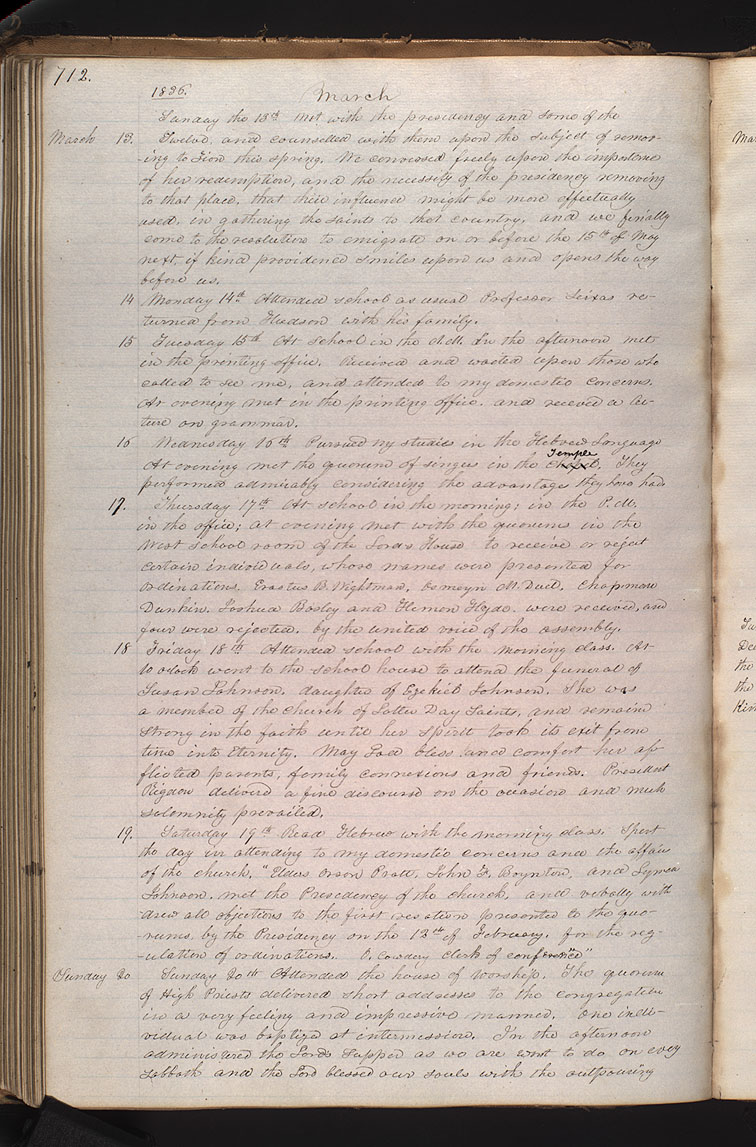 712.
1836. March
Sunday the 13th Met with the presidency and some of the
March 13. Twelve, and counselled with them upon the subject of remov-
-ing to Zion this spring. We conversed freely upon the importance
of her redemption, and the necessity of the presidency removing
to that place, that their influence might be more effectually
used, in gathering the saints to that country, and we finally
come to the resolution to emigrate on or before the 15th of May
next, if kind providence smiles upon us and opens the way
before us.
14 Monday 14th Attended school as usual Professor Seixas re-
turned from Hudson with his family.
15 Tuesday 15th At school in the A.M. In the afternoon met
in the printing office. Received and waited upon those who
called to see me, and attended to my domestic concerns.
At evening met in the printing office. and received a lec-
ture on grammar.
16 Wednesday 16th Pursued my studies in the Hebrew Language
At evening met the quorum of singers in the chapel. Temple They
performed admirably considering the advantages they have had
17. Thursday 17th At school in the morning; in the P.M.
in the office; at evening met with the quorums in the
West school room of the Lord's House to receive or reject
certain individuals, whose names were presented for
ordinations. Erastus B. Wightman, Osmeyn M. Duel. Chapman
Dunkin, Joshua Bosley and Hemon Hyde. were received, and
four were rejected. by the united voice of the assembly.
18 Friday 18th Attended school with the morning class. At
10 oclock went to the school house to attend the funeral of
Susan Johnson. daughter of Ezekiel Johnson. She was
a member of the church of Latter Day Saints, and remain
strong in the faith until her spirit took its exit from
time into Eternity. May God bless and comfort her af-
flicted parents, family connexions and friends. President
Rigdon deliverd a fine discourse on the occasion and much
solemnity prevailed.
19. Saturday 19th Read Hebrew with the morning class. Spent
the day in attending to my domestic concerns and the affairs
of the church. "Elders Orson Pratt, John F. Boynton, and Lyman
Johnson. met the Presedency of the church, and verbally with
drew all objections to the first resolution presented to the quo-
-rums by the Presidency on the 12th of February, for the reg-
-ulation of ordinations. O. Cowdery Clerk of conference"
Sunday 20 Sunday 20th Attended the house of Worship. The quorum
of High Priests delivered short addresses to the congregation
in a very feeling and impressive manner. One indi-
vidual was baptized at intermission. In the afternoon
administered the Lords Supper as we are wont to do on every
Sabbath and the Lord blessed our souls with the outpouring
Mar
Tu
Dea
the
the
Kim